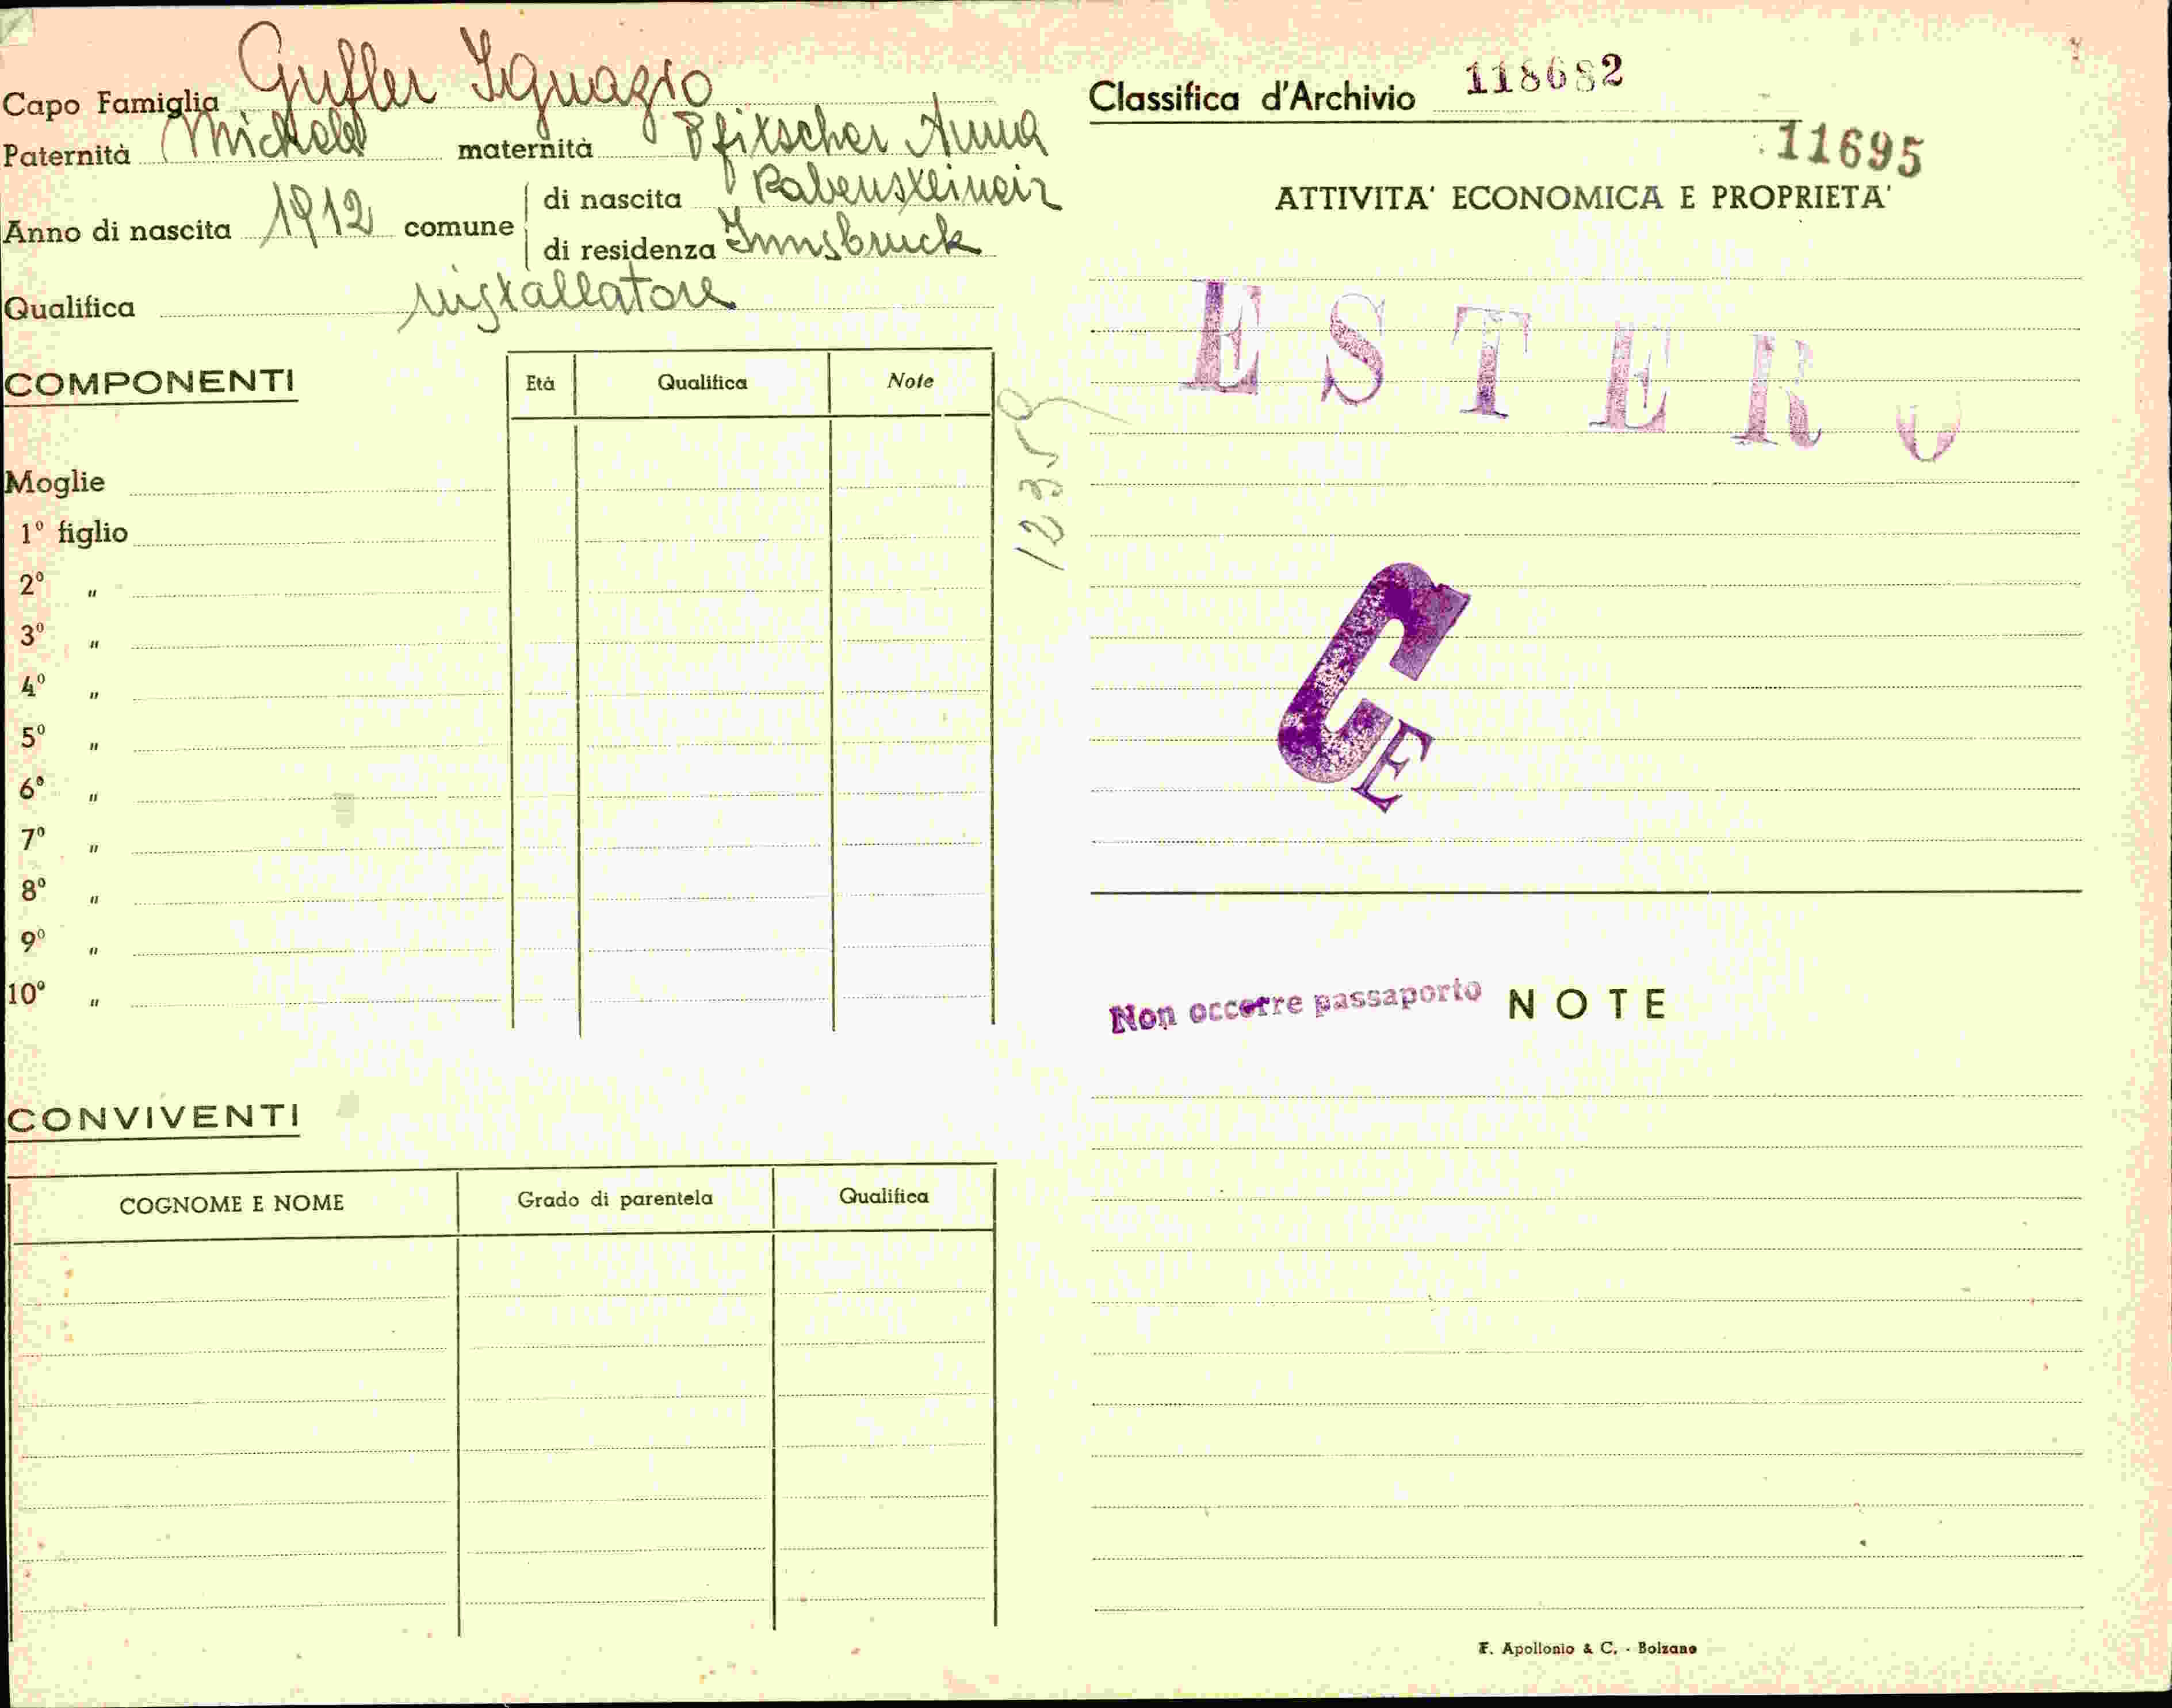 Capo Famiglia Gufler Ignazio
Paternità Michele maternità Pfitscher Anna
Anno di nascita 1912 comune di nascita
di residenza Innsbruck
Qualifica installatore
COMPONENTI
Età Qualifica Note
Moglie
1° figlio
2° "
3° "
4° "
5° "
6° "
7° "
8° "
9° "
10° "
CONVIVENTI
COGNOME E NOME Grado di parentela Qualifica
12359
Classifica d'Archivio 118682
11695
ATTIVITA' ECONOMICA E PROPRIETA'
ESTERO
CE
Non occorre passaporto NOTE
F. Apollonio & C. - Bolzano